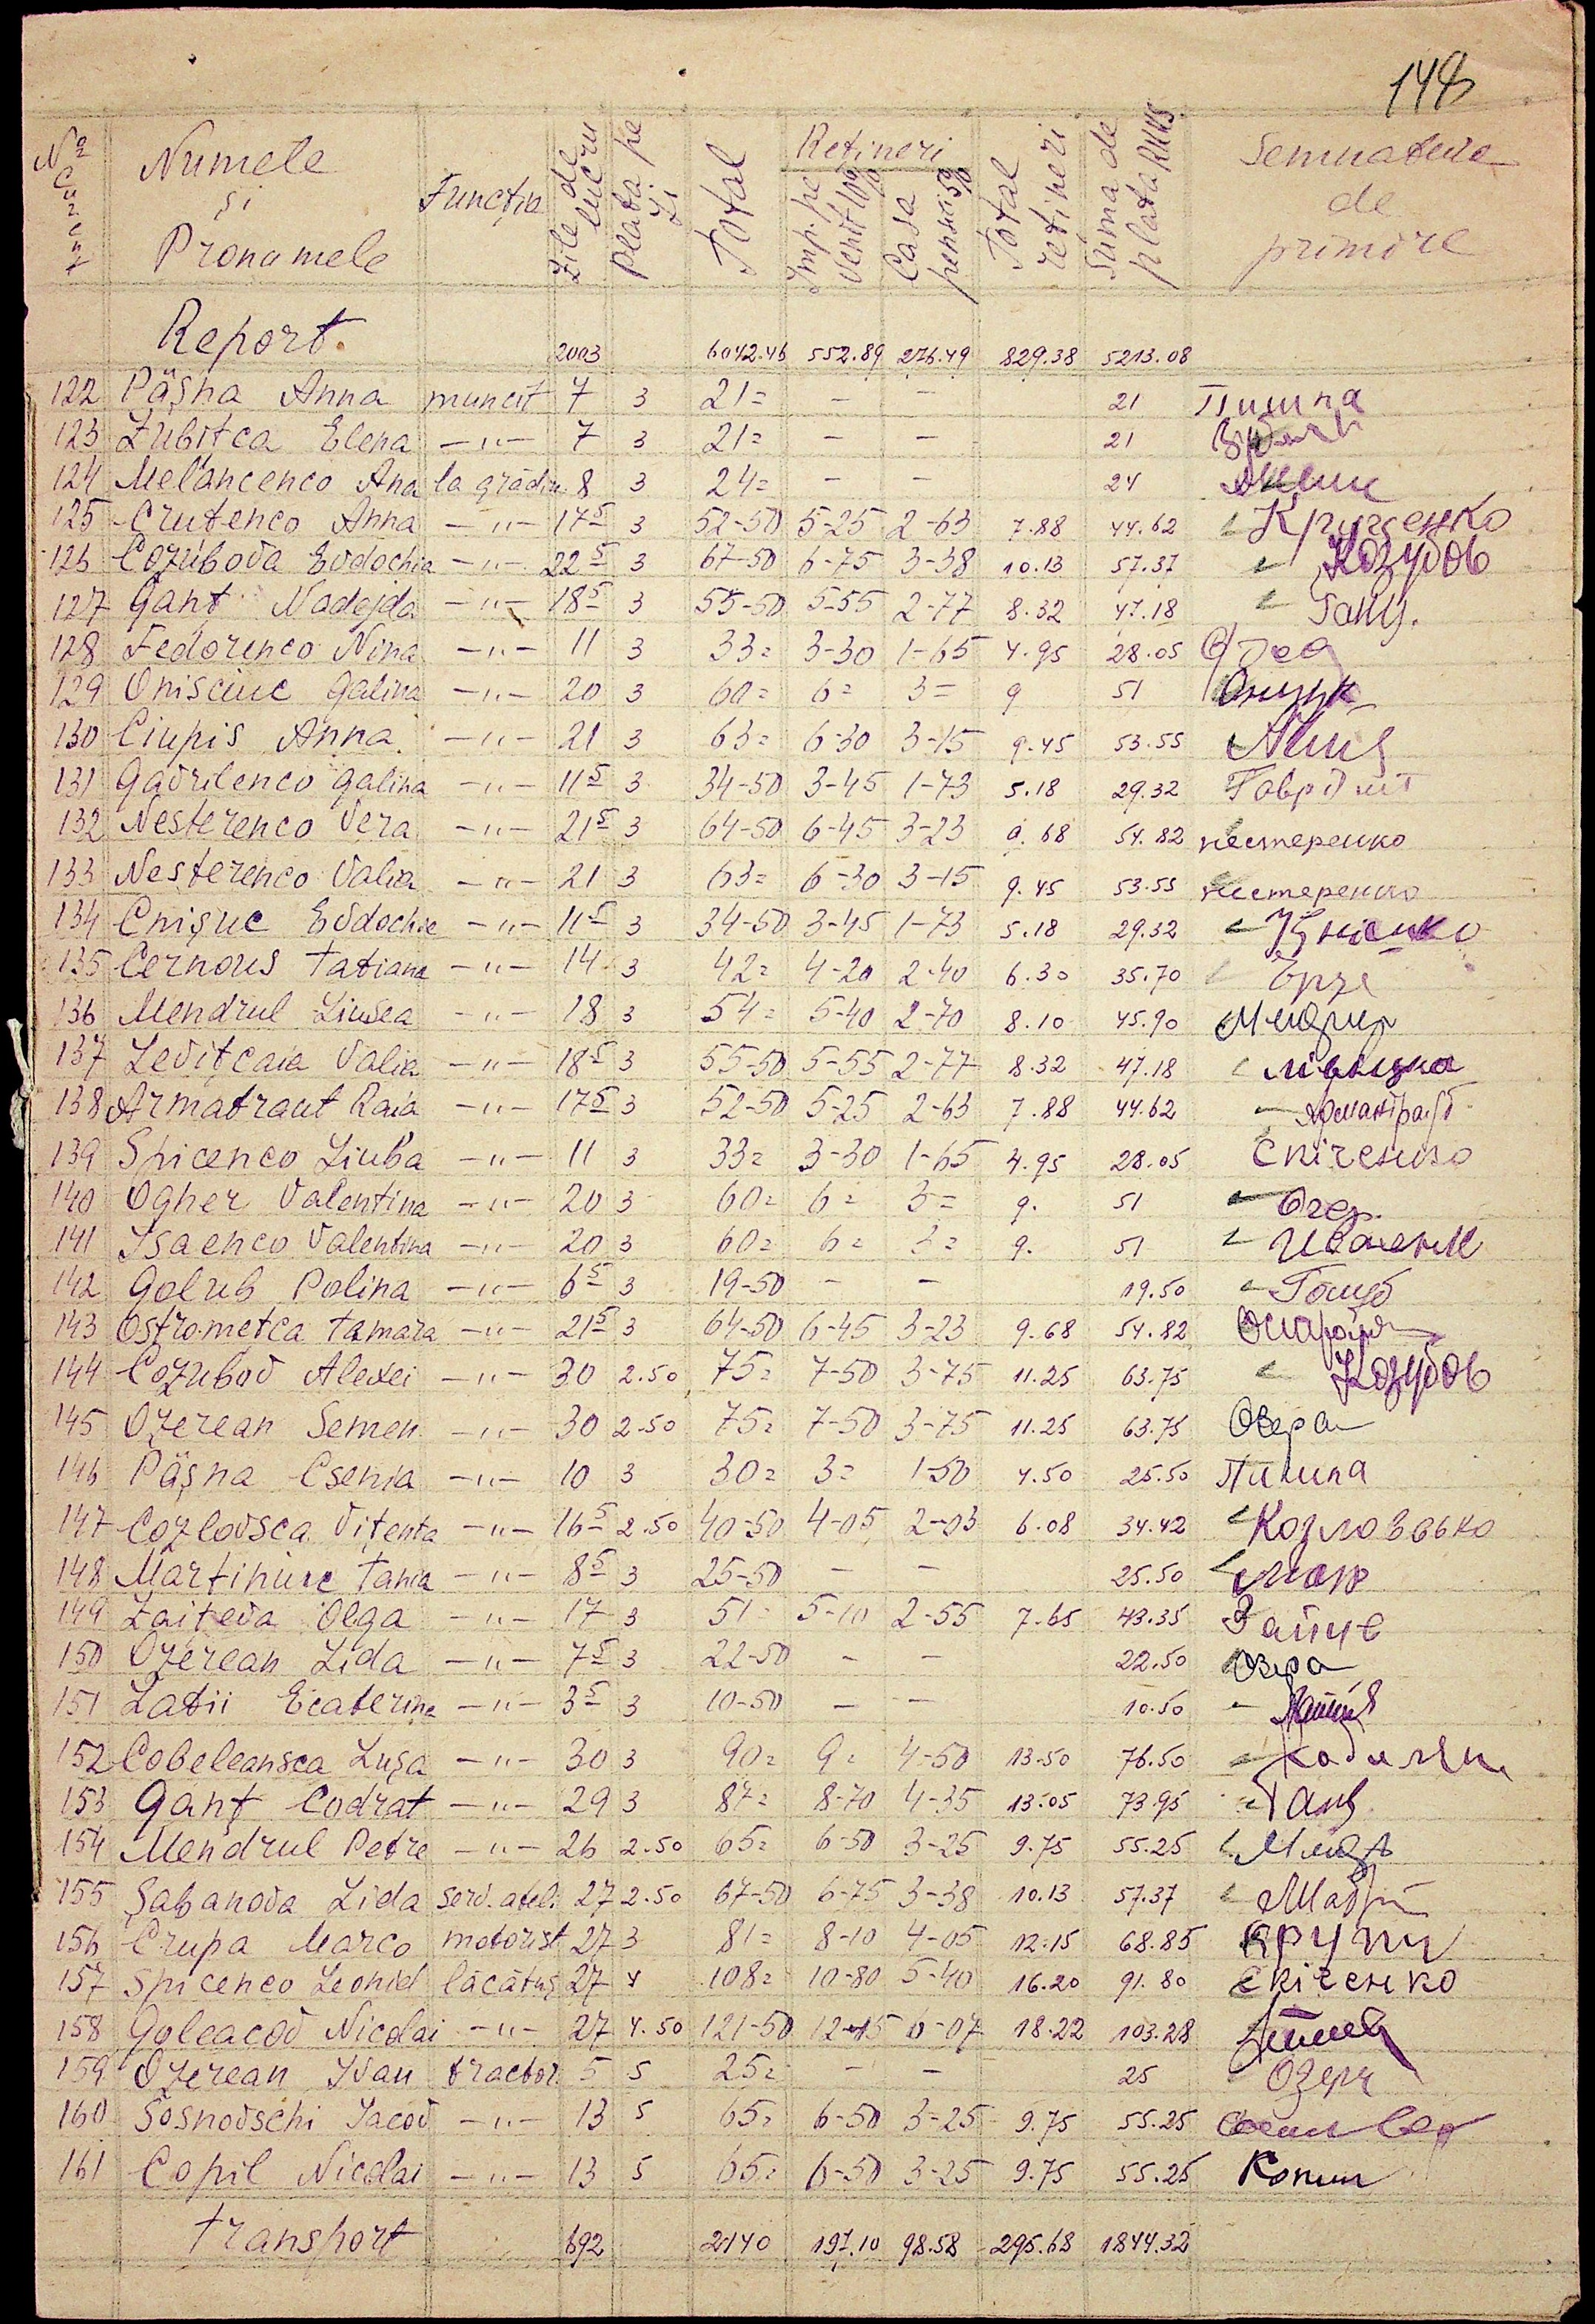 148
№ Curent Numele și Pronumele Funcția Zile de lucru plata pe zi Total Retineri Imp. pe venit 10% Casa pensii 5% Total retineri Suma de plata RKKS Semnatura de primire
Report. 2003 6042.46 552.89 276.49 829.38 5213.08
122 Pășna Anna muncit 7 3 21= – – 21 Пишна
123 Zubițca Elena –"– 7 3 21= – – 21
124 Melancenco Ana la grădin 8 3 24= – – 24
125 Crutenco Anna –"– 17⁵ 3 52-50 5-25 2-63 7.88 44.62 Круценко
126 Cozubova Evdochia –"– 22⁵ 3 67-50 6-75 3-38 10.13 57.37 Козубов
127 Ganț Nadejda –"– 18⁵ 3 55-50 5-55 2-77 8.32 47.18 Ганц.
128 Fedorenco Nina –"– 11 3 33= 3-30 1-65 4.95 28.05 Фед
129 Onisciuc Galina –"– 20 3 60= 6= 3= 9 51
130 Ciupis Anna –"– 21 3 63= 6-30 3-15 9.45 53.55
131 Gavrilenco Galina –"– 11⁵ 3 34-50 3-45 1-73 5.18 29.32
132 Nesterenco Vera –"– 21⁵ 3 64-50 6-45 3-23 9.68 54.82 нестеренко
133 Nesterenco Valia –"– 21 3 63= 6-30 3-15 9.45 53.55 нестеренко
134 Cnișuc Evdochie –"– 11⁵ 3 34-50 3-45 1-73 5.18 29.32
135 Cernous Tatiana –"– 14 3 42= 4-20 2-40 6.30 35.70
136 Mendrul Liusea –"– 18 3 54= 5-40 2-70 8.10 45.90
137 Levițcaia Valia –"– 18⁵ 3 55-50 5-55 2-77 8.32 47.18
138 Armatraut Raia –"– 17⁵ 3 52-50 5-25 2-63 7.88 44.62
139 Spicenco Liuba –"– 11 3 33= 3-30 1-65 4.95 28.05 Спіченко
140 Ogher Valentina –"– 20 3 60= 6= 3= 9. 51 Огер.
141 Isaenco Valentina –"– 20 3 60= 6= 3= 9. 51
142 Golub Polina –"– 6⁵ 3 19-50 – – 19.50
143 Ostrometca Tamara –"– 21⁵ 3 64-50 6-45 3-23 9.68 54.82
144 Cozubov Alexei –"– 30 2.50 75= 7-50 3-75 11.25 63.75 Козубов
145 Ozerean Semen –"– 30 2.50 75= 7-50 3-75 11.25 63.75 Озера
146 Pășna Csenia –"– 10 3 30= 3= 1-50 4.50 25.50 Пишна
147 Cozlovsca Vitenta –"– 16⁵ 2.50 40-50 4-05 2-03 6.08 34.42 Козловсько
148 Martiniuc Tania –"– 8⁵ 3 25-50 – – 25.50 Мар
149 Zaițeva Olga –"– 17 3 51= 5-10 2-55 7.65 43.35 Зайцв
150 Ozerean Lida –"– 7⁵ 3 22-50 – – 22.50 Озера
151 Latii Ecaterina –"– 3⁵ 3 10-50 – – 10.50
152 Cobeleansca Lușa –"– 30 3 90= 9= 4-50 13.50 76.50
153 Ganț Codrat –"– 29 3 87= 8-70 4-35 13.05 73.95 Ганц
154 Mendrul Petre –"– 26 2.50 65= 6-50 3-25 9.75 55.25
155 Șabanova Lida serv. atel. 27 2.50 67-50 6-75 3-38 10.13 57.37
156 Crupa Marco motorist 27 3 81= 8-10 4-05 12.15 68.85
157 Spicenco Leonid lăcătuș 27 4 108= 10-80 5-40 16.20 91.80 Спіченко
158 Goleacov Nicolai –"– 27 4.50 121-50 12-15 6-07 18.22 103.28
159 Ozerean Ivan tractor 5 5 25= – – 25 Озеря
160 Sosnovschi Iacov –"– 13 5 65= 6-50 3-25 9.75 55.25
161 Copil Nicolai –"– 13 5 65= 6-50 3-25 9.75 55.25 Копил
Transport 692 2140 197.10 98.58 295.68 1844.32